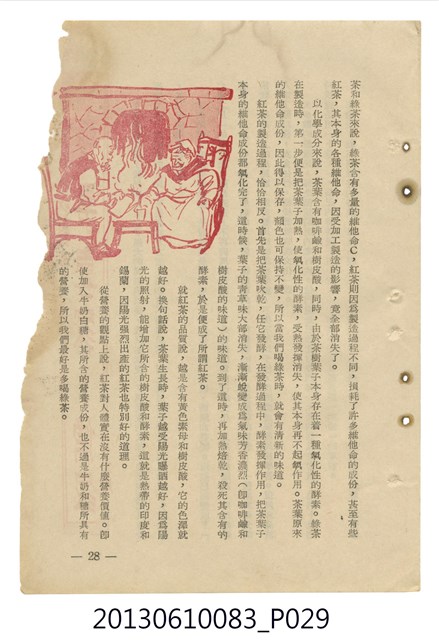 茶和綠茶來說，綠茶含有多量的維他命C，紅茶則因爲製造過程不同，損耗了許多維他命的成份，甚至有些
紅茶，其本身的各種維他命，因受加工製造的影響，竟全部消失了。
以化學成分來說，茶葉含有咖啡鹼和樹皮酸，同時，由於茶樹葉子本身存在着一種氧化性的酵素。綠茶
在製造時，第一步便是把茶葉子加熱，使氧化性的酵素，受熱發揮消失，使其本身再不起氧化作用。茶葉原來
的維他命成份，因此得以保存，顏色也可保持不變，所以當我們喝綠茶時，就會有清新的味道。
紅茶的製造過程，恰恰相反。首先是把茶葉吹乾，任它發酵，在發酵過程中，酵素發揮作用，把茶葉子
本身的維他命成份都氧化完了，這時候，葉子的青草味大部消失，漸漸蛻變成爲氣味芳香濃烈（即咖啡鹼和
樹皮酸的味道）的味道。到了這時，再加熱焙乾，殺死其含有的
酵素，於是便成了所謂紅茶。
就紅茶的品質說，越是含有黃色素母和樹皮酸，它的色澤就
越好。換句話說，茶葉生長時，葉子越受陽光曝晒越好，因爲陽
光的照射，能增加它所含的樹皮酸和酵素，這就是熱帶的印度和
錫蘭，因陽光強烈出產的紅茶也特別好的道理。
從營養的觀點上說，紅茶對人體實在沒有什麼營養價值。即
使加入牛奶白糖，其所含的營養成份，也不過是牛奶和糖所具有
的營養，所以我們最好是多喝綠茶。
— 28 —
20130610083_P029